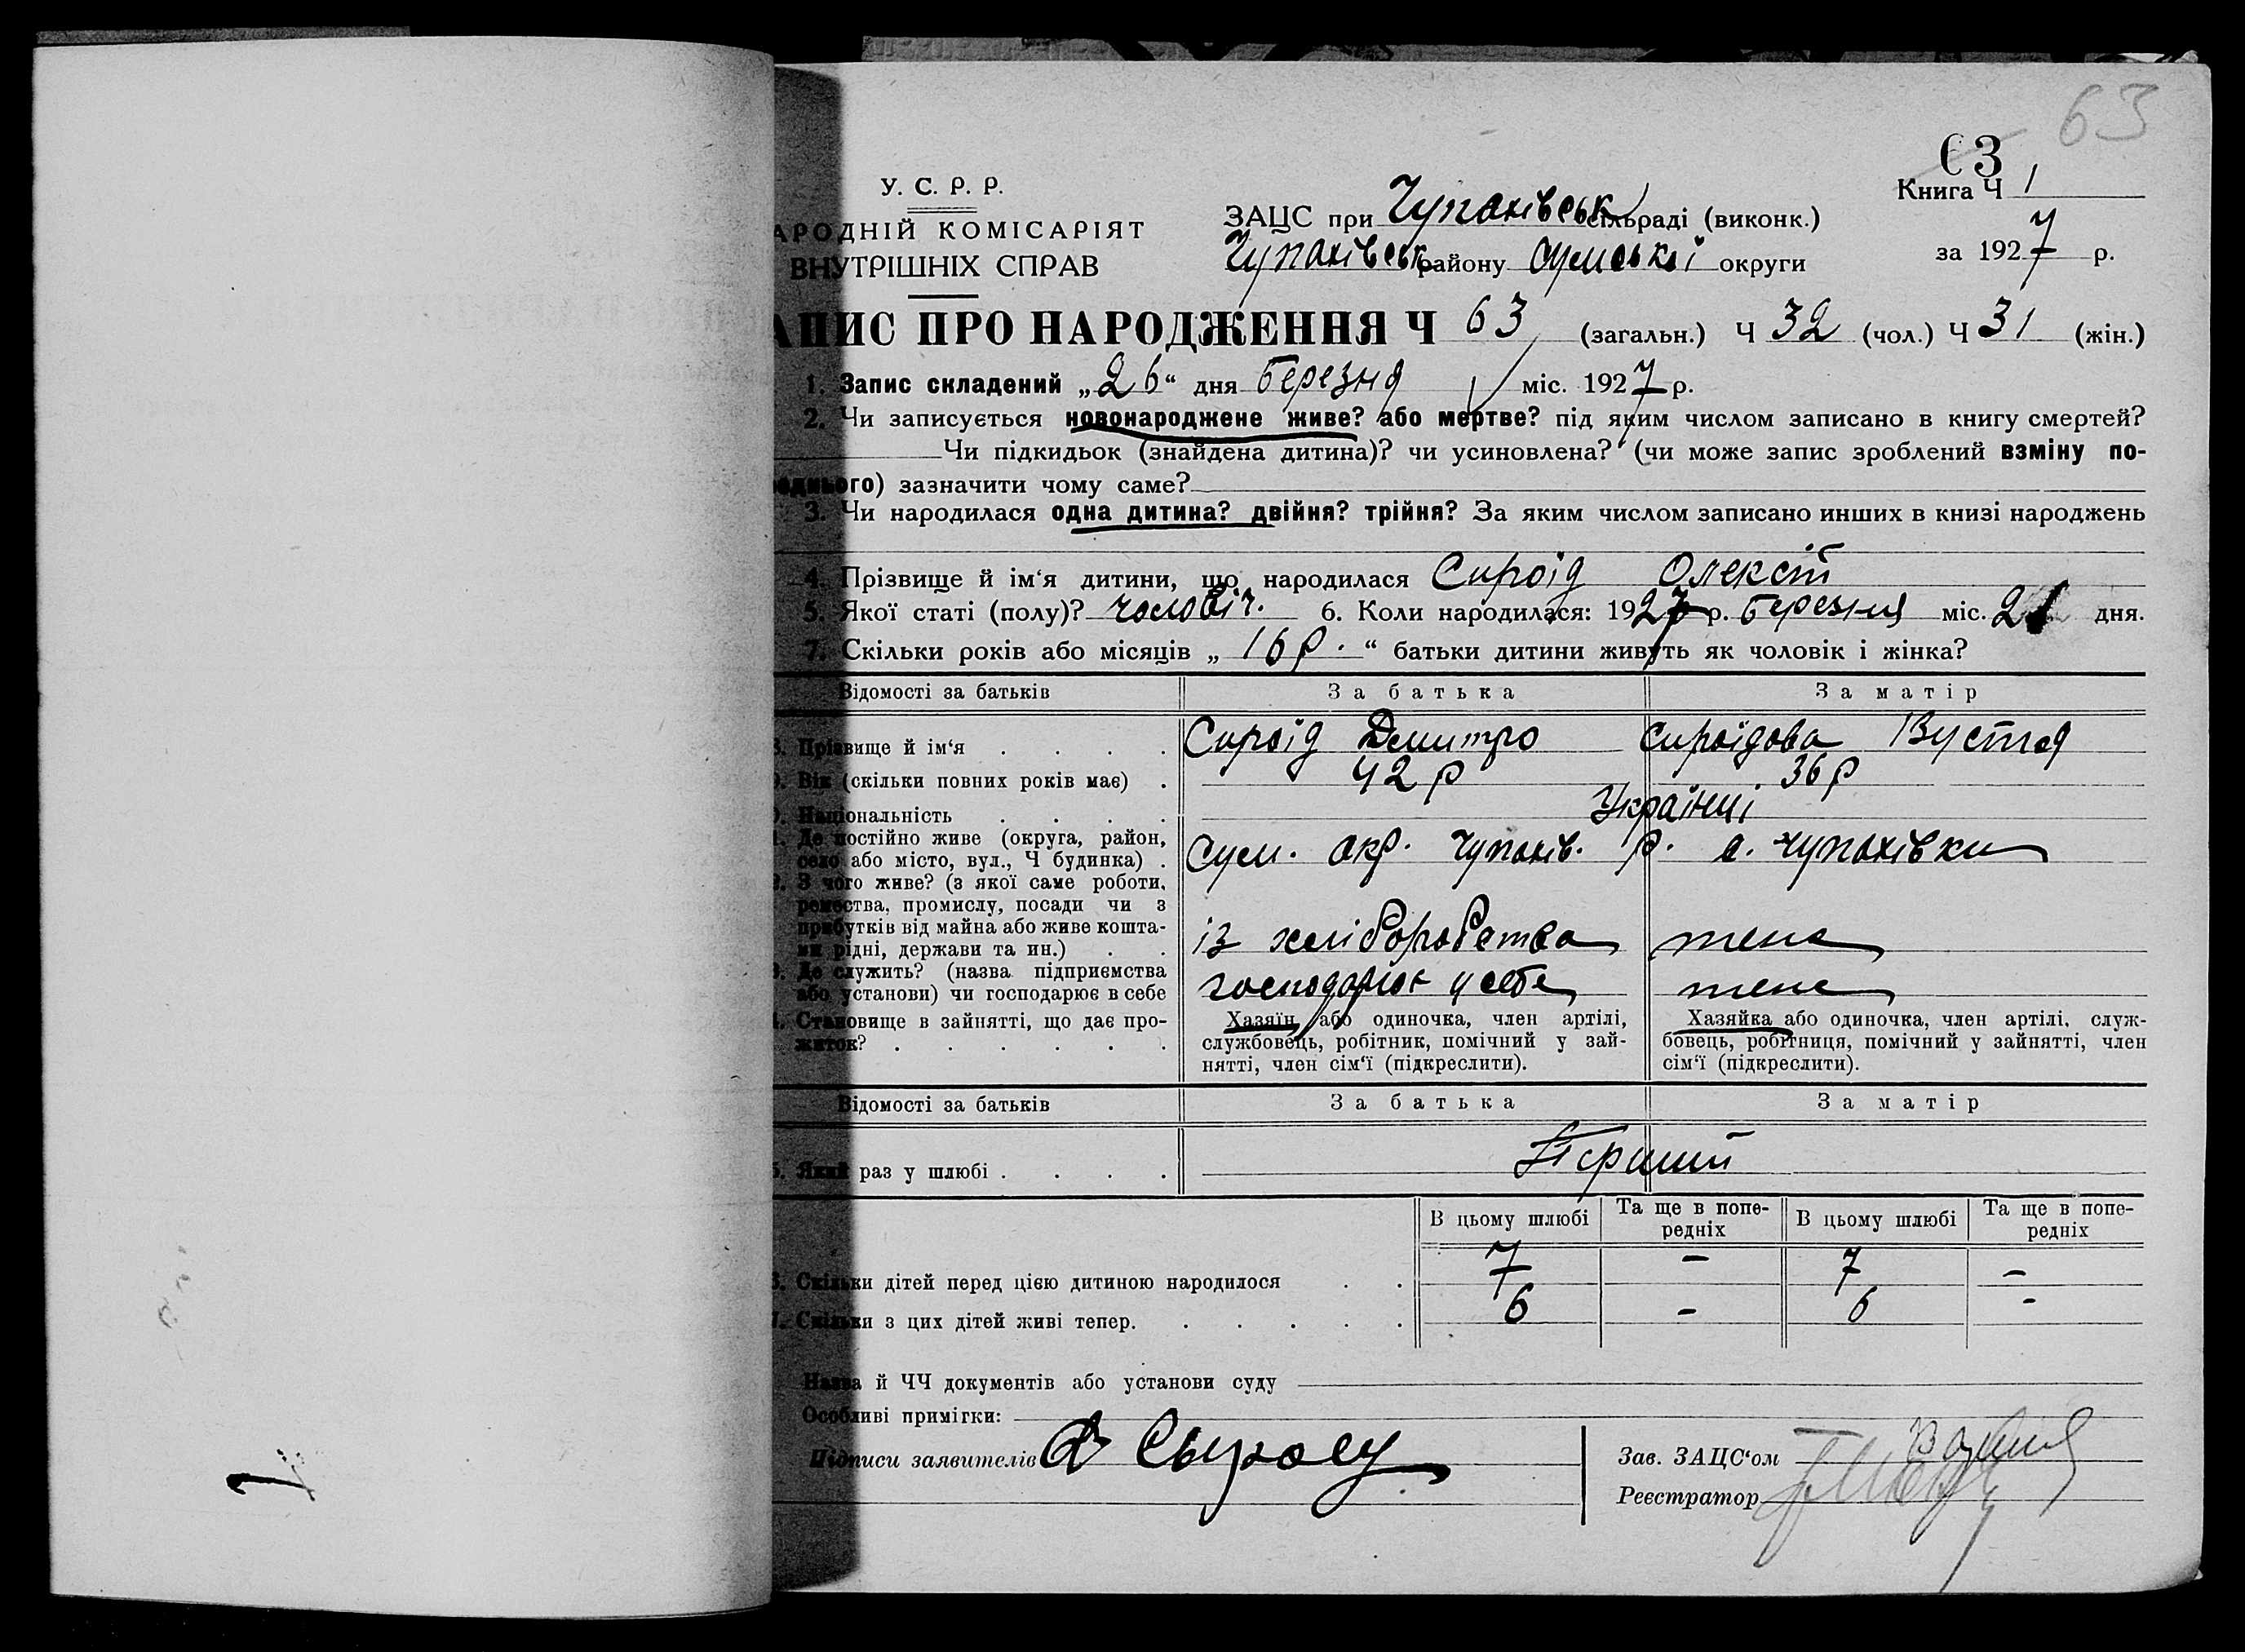 63
63
Книга Ч 1
У. С. Р. Р.
АРОДНІЙ КОМІСАРІЯТ
ВНУТРІШНІХ СПРАВ
ЗАЦС при Чупахівськ сільраді (виконк.)
Чупахівськ району Сумської округи
за 1927 р.
АПИС ПРО НАРОДЖЕННЯ Ч 63 (загальн.) Ч 32 (чол.) Ч 31 (жін.)
1. Запис складений „26“ дня Березня міс. 1927 р.
2. Чи записується новонароджене живе? або мертве? під яким числом записано в книгу смертей?
Чи підкидьок (знайдена дитина)? чи усиновлена? (чи може запис зроблений взміну по-
еднього) зазначити чому саме?
3. Чи народилася одна дитина? двійня? трійня? За яким числом записано инших в книзі народжень
4. Прізвище й ім‘я дитини, що народилася Сироїд Олексій
5. Якої статі (полу)? чоловіч. 6. Коли народилася: 1927 р. Березня міс. 21 дня.
7. Скільки років або місяців „ 16 р. “ батьки дитини живуть як чоловік і жінка?
Відомості за батьків За батька За матір
8. Прізвище й ім‘я . . . . Сироїд Демитро Сироїдова Вустя
9. Вік (скільки повних років має) . 42 р 36 р
0. Національність . . . . Українці
1. Де постійно живе (округа, район,
село або місто, вул., Ч будинка) . Сум. окр. Чупахів. р. с. Чупахівки
2. З чого живе? (з якої саме роботи,
ремества, промислу, посади чи з
прибутків від майна або живе кошта-
ми рідні, держави та ин.) . . із хліборобства теж
3. Де служить? (назва підприємства
або установи) чи господарює в себе господарює у себе теж
4. Становище в зайнятті, що дає про-
житок? . . . . . .
Хазяїн або одиночка, член артілі,
службовець, робітник, помічний у зай-
нятті, член сім‘ї (підкреслити).
Хазяйка або одиночка, член артілі, служ-
бовець, робітниця, помічний у зайнятті, член
сім‘ї (підкреслити).
Відомості за батьків За батька За матір
5. Який раз у шлюбі . . . . Перший
В цьому шлюбі Та ще в попе-редніх В цьому шлюбі Та ще в попе-редніх
6. Скільки дітей перед цією дитиною народилося . . 7 – 7 –
7. Скільки з цих дітей живі тепер. . . . . . 6 – 6 -
Назва й ЧЧ документів або установи суду
Особливі примітки:
Підписи заявителів
Зав. ЗАЦС‘ом
Реєстратор